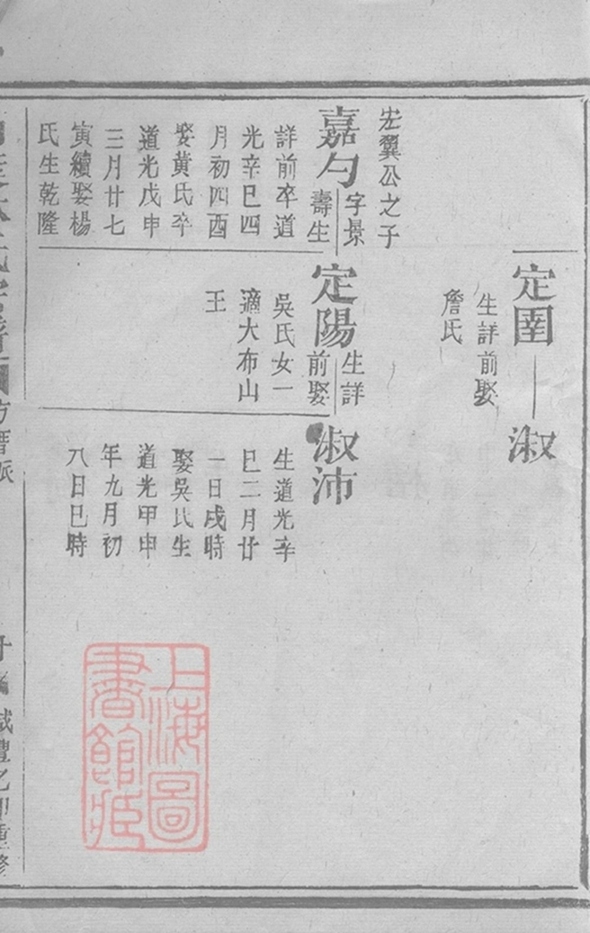 定圉
生詳前娶
詹氏
淑
宏翼公之子
嘉勺
字景
壽生
詳前卒道
光辛巳四
月初四酉
娶黃氏卒
道光戊申
三月廿七
寅續娶楊
氏生乾隆
定陽
生詳
前娶
吳氏女一
適大布山
王
淑沛
生道光辛
巳二月廿
一日戌時
娶吳氏生
道光甲申
年九月初
八日巳時
上海圖
書館藏
咸豐乙卯重修